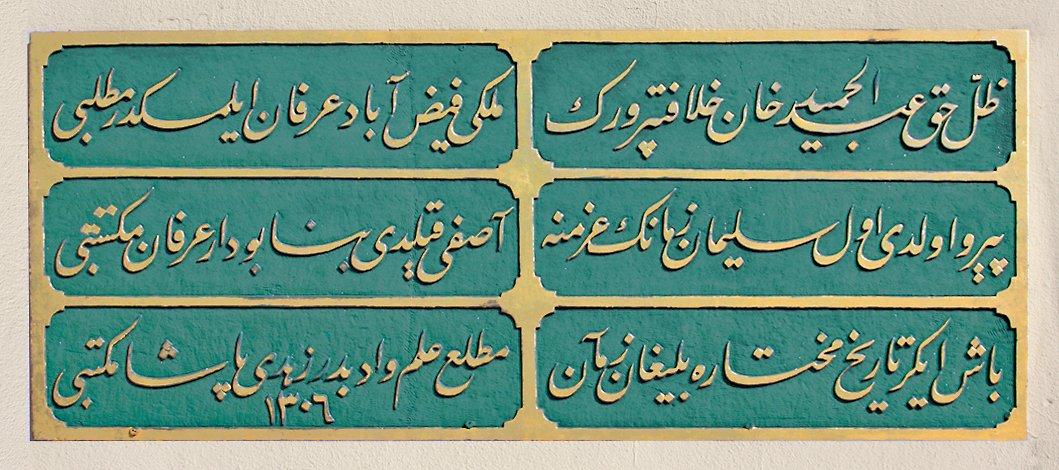 ظلّ حق عبد الحمید خان خلافتپرورك
ملكی فیض آباد عرفان ایلمکدر مطلبی
پیرو اولدی اول سلیمان زمانك عزمنه
آصفی قیلدی بنا بو دار عرفان مكتبی
باش ایکر تاریخ مختاره بلیغان زمان
مطلع علم و ادبدر زهدی پاشا مکتبی
١٣٠٦